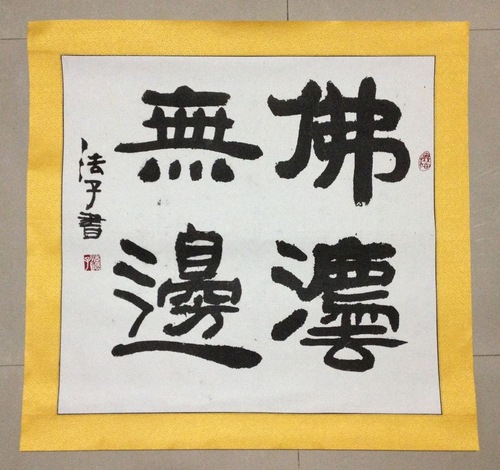 佛灋
無邊
法子書